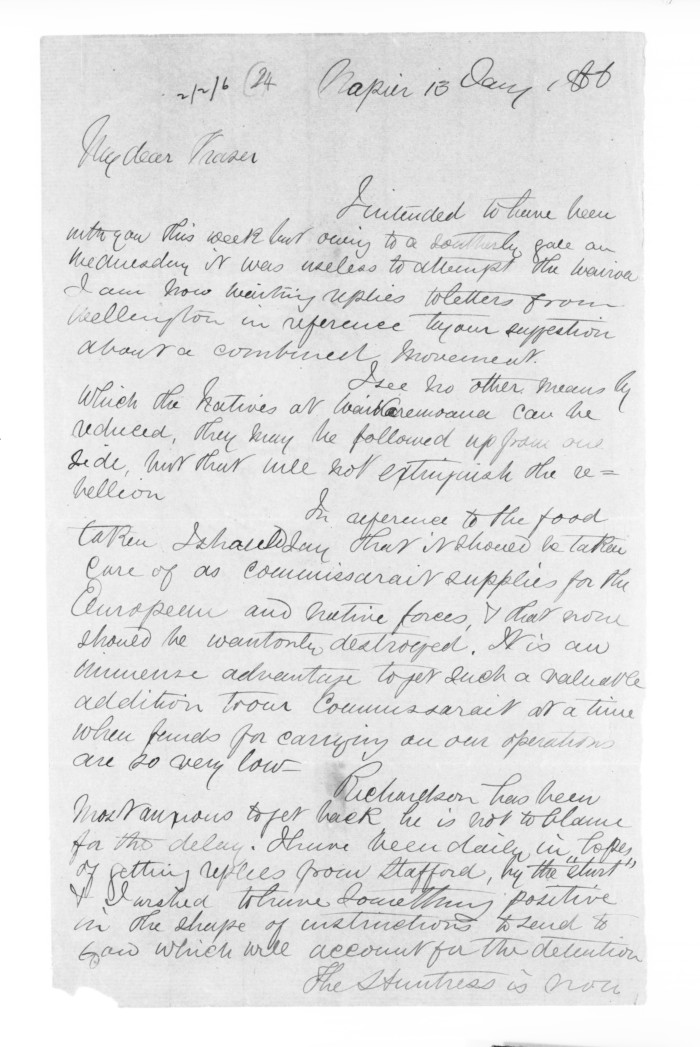 2/2/6 (24 Napier 13 Jany 1866
My dear Fraser
I intended to have been
with you this week but owing to a southerly gale on
Wednesday it was useless to attempt the Wairoa
I am now waiting replies to letters from
Wellington in reference to your suggestion
about a combined movement.
I see no other means by
which the Natives at Waikaremoana can be
reduced, they may be followed up from one
side, but that will not extinguish the re=
bellion
In reference to the food
taken I should say that it should be taken
care of as commissarait supplies for the
European and native forces, & that none
should be wantonly destroyed. It is an
immense advantage to get such a valuable
addition to our Commissarait at a time
when funds for carrying on our operations
are so very low—
Richardson has been
most anxious to get back he is not to blame
for the delay. I have been daily in hopes
of getting replies from Stafford, by the "Sturt"
& I wished to have something positive
in the shape of instructions to send to
you which will account for the detention
The Huntress is now